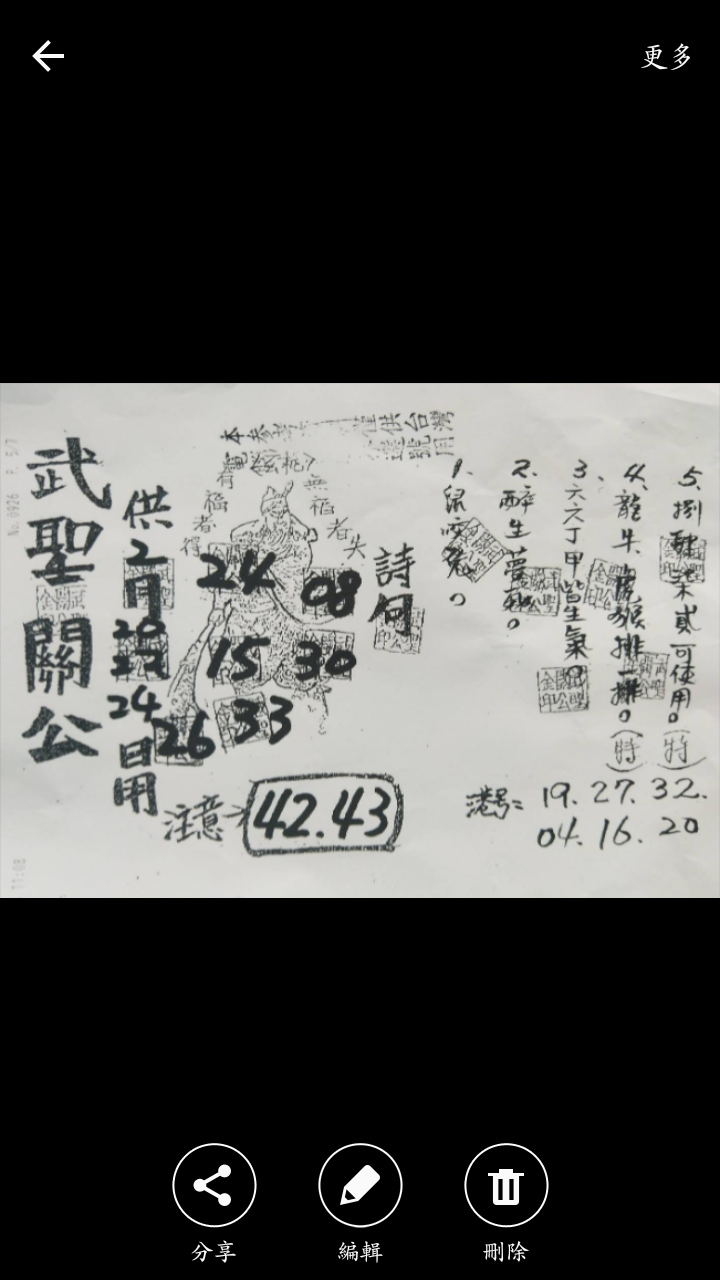 更多
武聖關公
供2月20 23 24日用
有福者得
無福者失
24
08
15
30
33
26
注意→
42.43
詩句
1、鼠咬兔。
2、醉生夢死。
3、六六丁甲皆生氣。
4、龍牛虎猴排一排。(特)
5、捌 柒貳可使用。(特)
港号=19.27.32.
04.16.20
分享
編輯
刪除